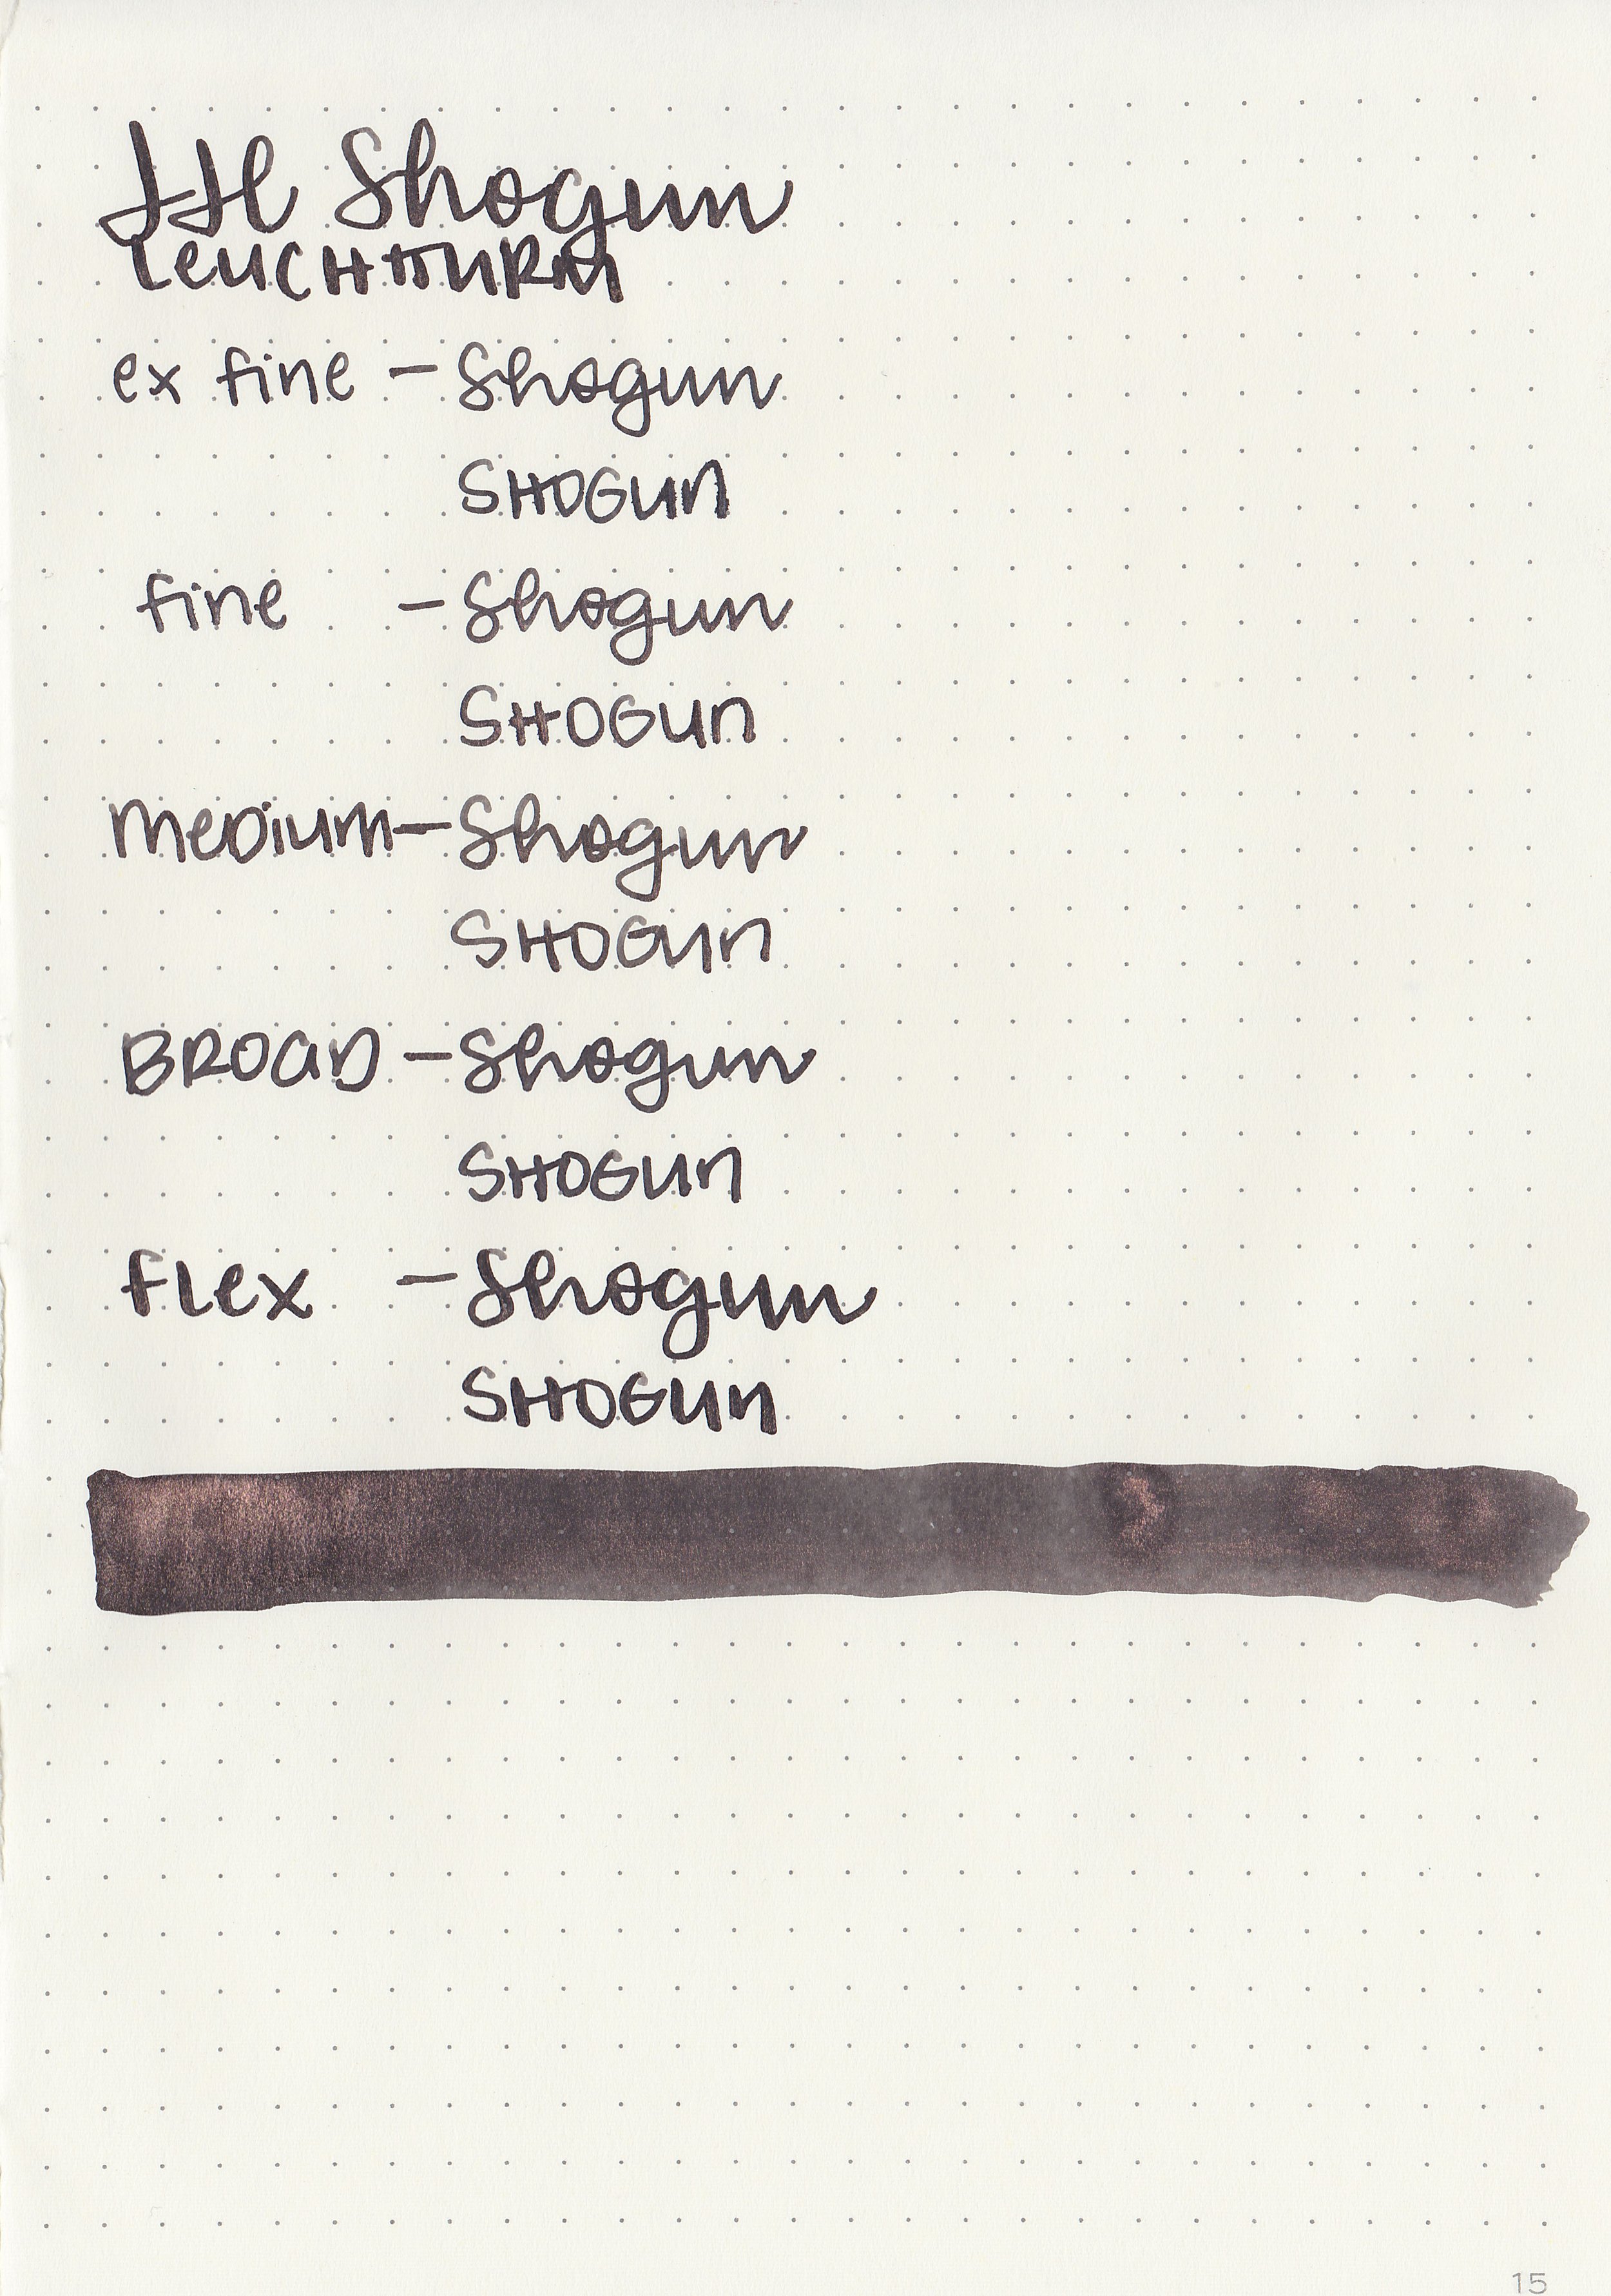 JH Shogun
LEUCHTTURM
ex fine - Shogun
SHOGUN
fine - Shogun
SHOGUN
MEDIUM - Shogun
SHOGUN
BROAD - Shogun
SHOGUN
FLEX - Shogun
SHOGUN
15